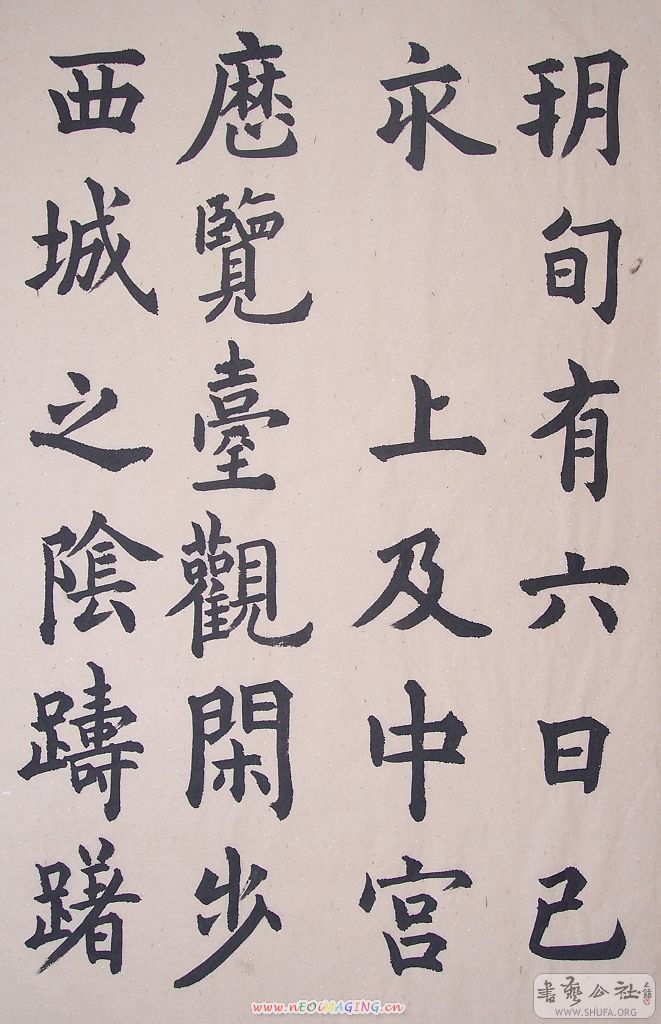 朔旬有六日己
亥 上及中宮
歷覽臺觀閑步
西城之陰躊躇
www.nEOiMAGiNG.cn
書藝公社
WWW.SHUFA.ORG